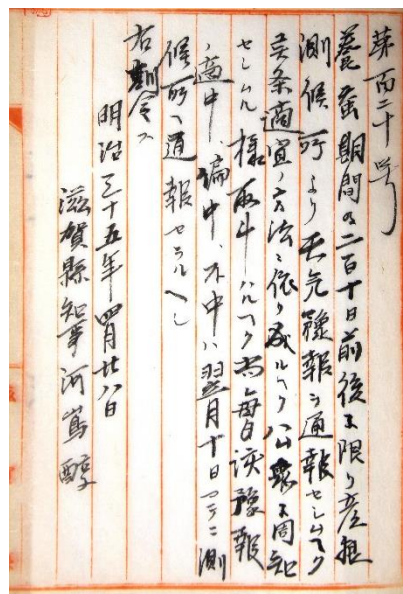 第百二十号
養蚕期間及二百十日前後ニ限リ彦根
測候所より天気予報ヲ通報セシムヘク
候条適宜ノ方法ニ依リ成ルヘク公衆ニ周知
セシムル様取斗ハルヘク尚毎日該予報
ノ適中、偏中、不中ハ翌月十日マテニ測
候所ヘ通報セラルヘシ
右訓令ス
明治三十五年四月廿八日
滋賀縣知事河島醇